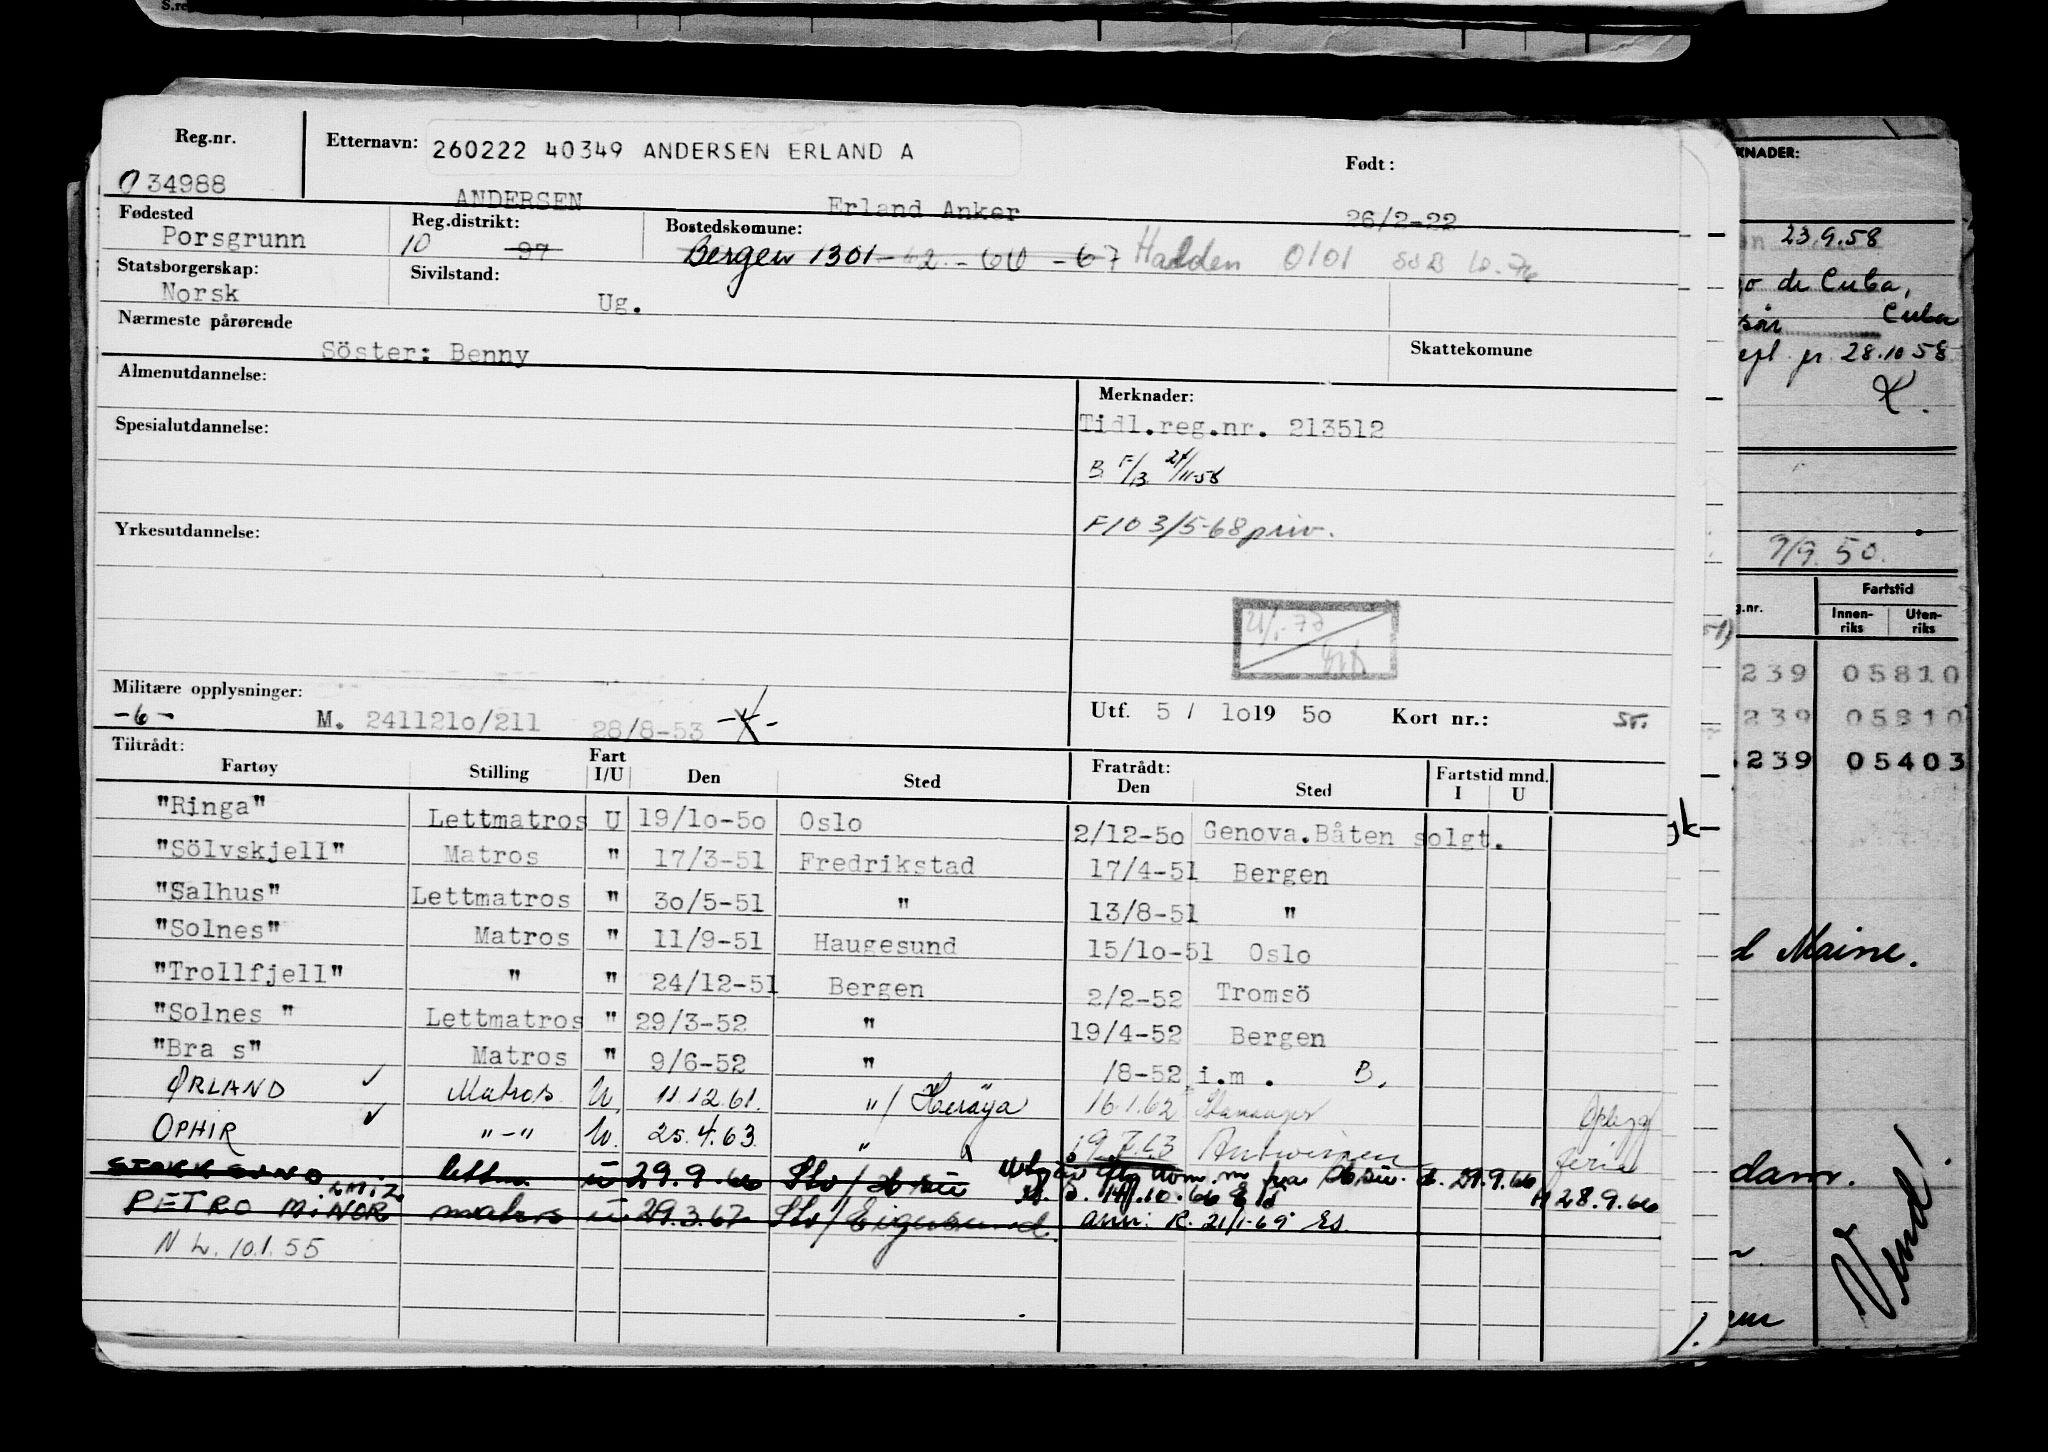 Reg.nr.
Etternavn: 260222 40349 ANDERSEN ERLAND A
Født:
034988
ANDERSEN Erland Anker 26/2-22
Fødested Reg.distrikt: Bostedskomune:
Porsgrunn 10 97 Bergen 1301-42-60-67 Halden 0101
Statsborgerskap: Sivilstand:
Norsk Ug.
Nærmeste pårørende
Söster: Benny Skattekomune
Almenutdannelse:
Merknader:
Tidl.reg.nr. 213512
Spesialutdannelse:
F10 3/5-68 priv.
Yrkesutdannelse:
Militære opplysninger:
-6- M. 2411210/211 28/8-53
Utf. 5 / 1019 50 Kort nr.:
Tiltrådt: Fratrådt:
Fartøy Stilling Fart I/U Den Sted Den Sted Fartstid mnd. I U
"Ringa" Lettmatros U 19/10-50 Oslo 2/12-50 Genova.Båten solgt.
"Sölvskjell" Matros " 17/3-51 Fredrikstad 17/4-51 Bergen
"Salhus" Lettmatros " 30/5-51 " 13/8-51 "
"Solnes" Matros " 11/9-51 Haugesund 15/10-51 Oslo
"Trollfjell" " " 24/12-51 Bergen 2/2-52 Tromsö
"Solnes " Lettmatros " 29/3-52 " 19/4-52 Bergen
"Bra s" Matros " 9/6-52 " /8-52 i.m. B.
ØRLAND Matros U. 11.12.61. "/ Herøya 16.1.62 Stavanger Opplegg
OPHIR "-" U. 25.4.63. " Antwerpen ferie
29.9.66 28.9.66
PETRO MINOR matros u 29.3.67 Slv/Eigersund. ann: R. 21/1-69 Es.
10.1.55
KNADER:
23.9.58
de Cuba,
Cuba
28.10 58
9/9.50.
g.nr. Fartstid
Innen-riks Uten-riks
239 05810
239 05810
239 05403
Maine.
dam.
Vend!